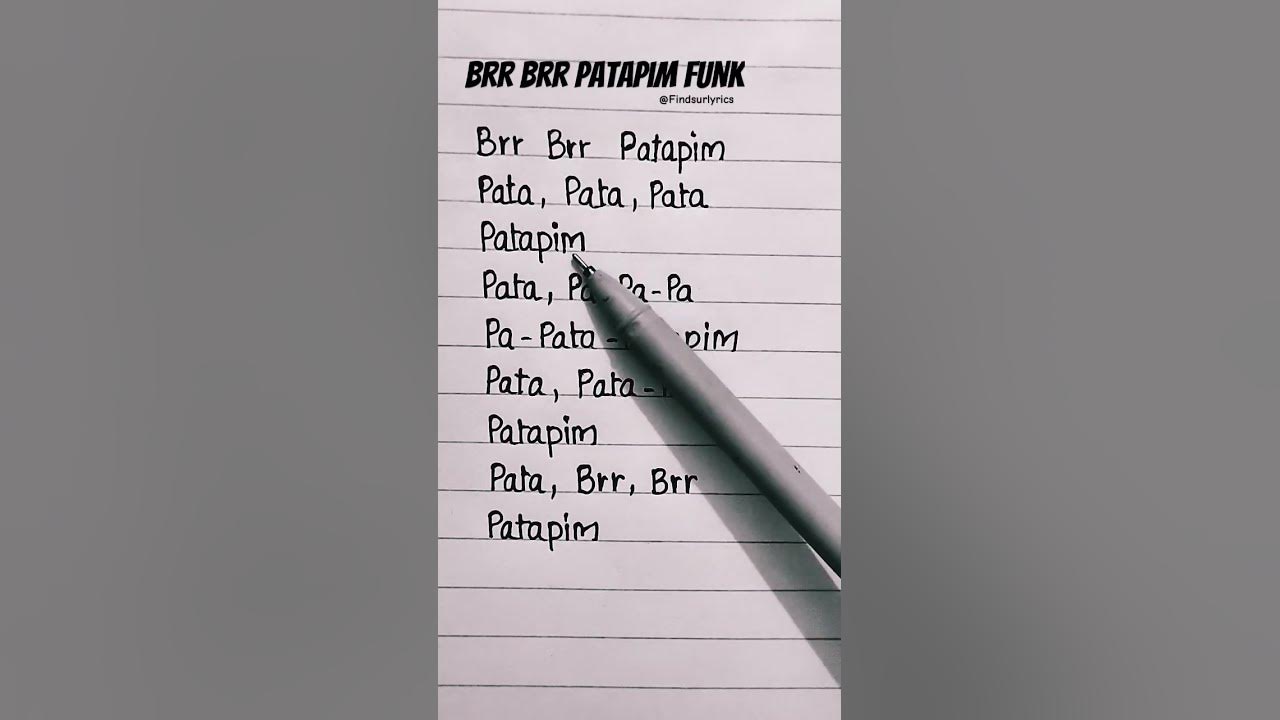 BRR BRR PATAPIM FUNK
@Findsurlyrics
Brr Brr Patapim
Pata, Pata, Pata
Patapim
Pata, Pa-Pa
Pa-Pata-
Pata, Pata-
Patapim
Pata, Brr, Brr
Patapim